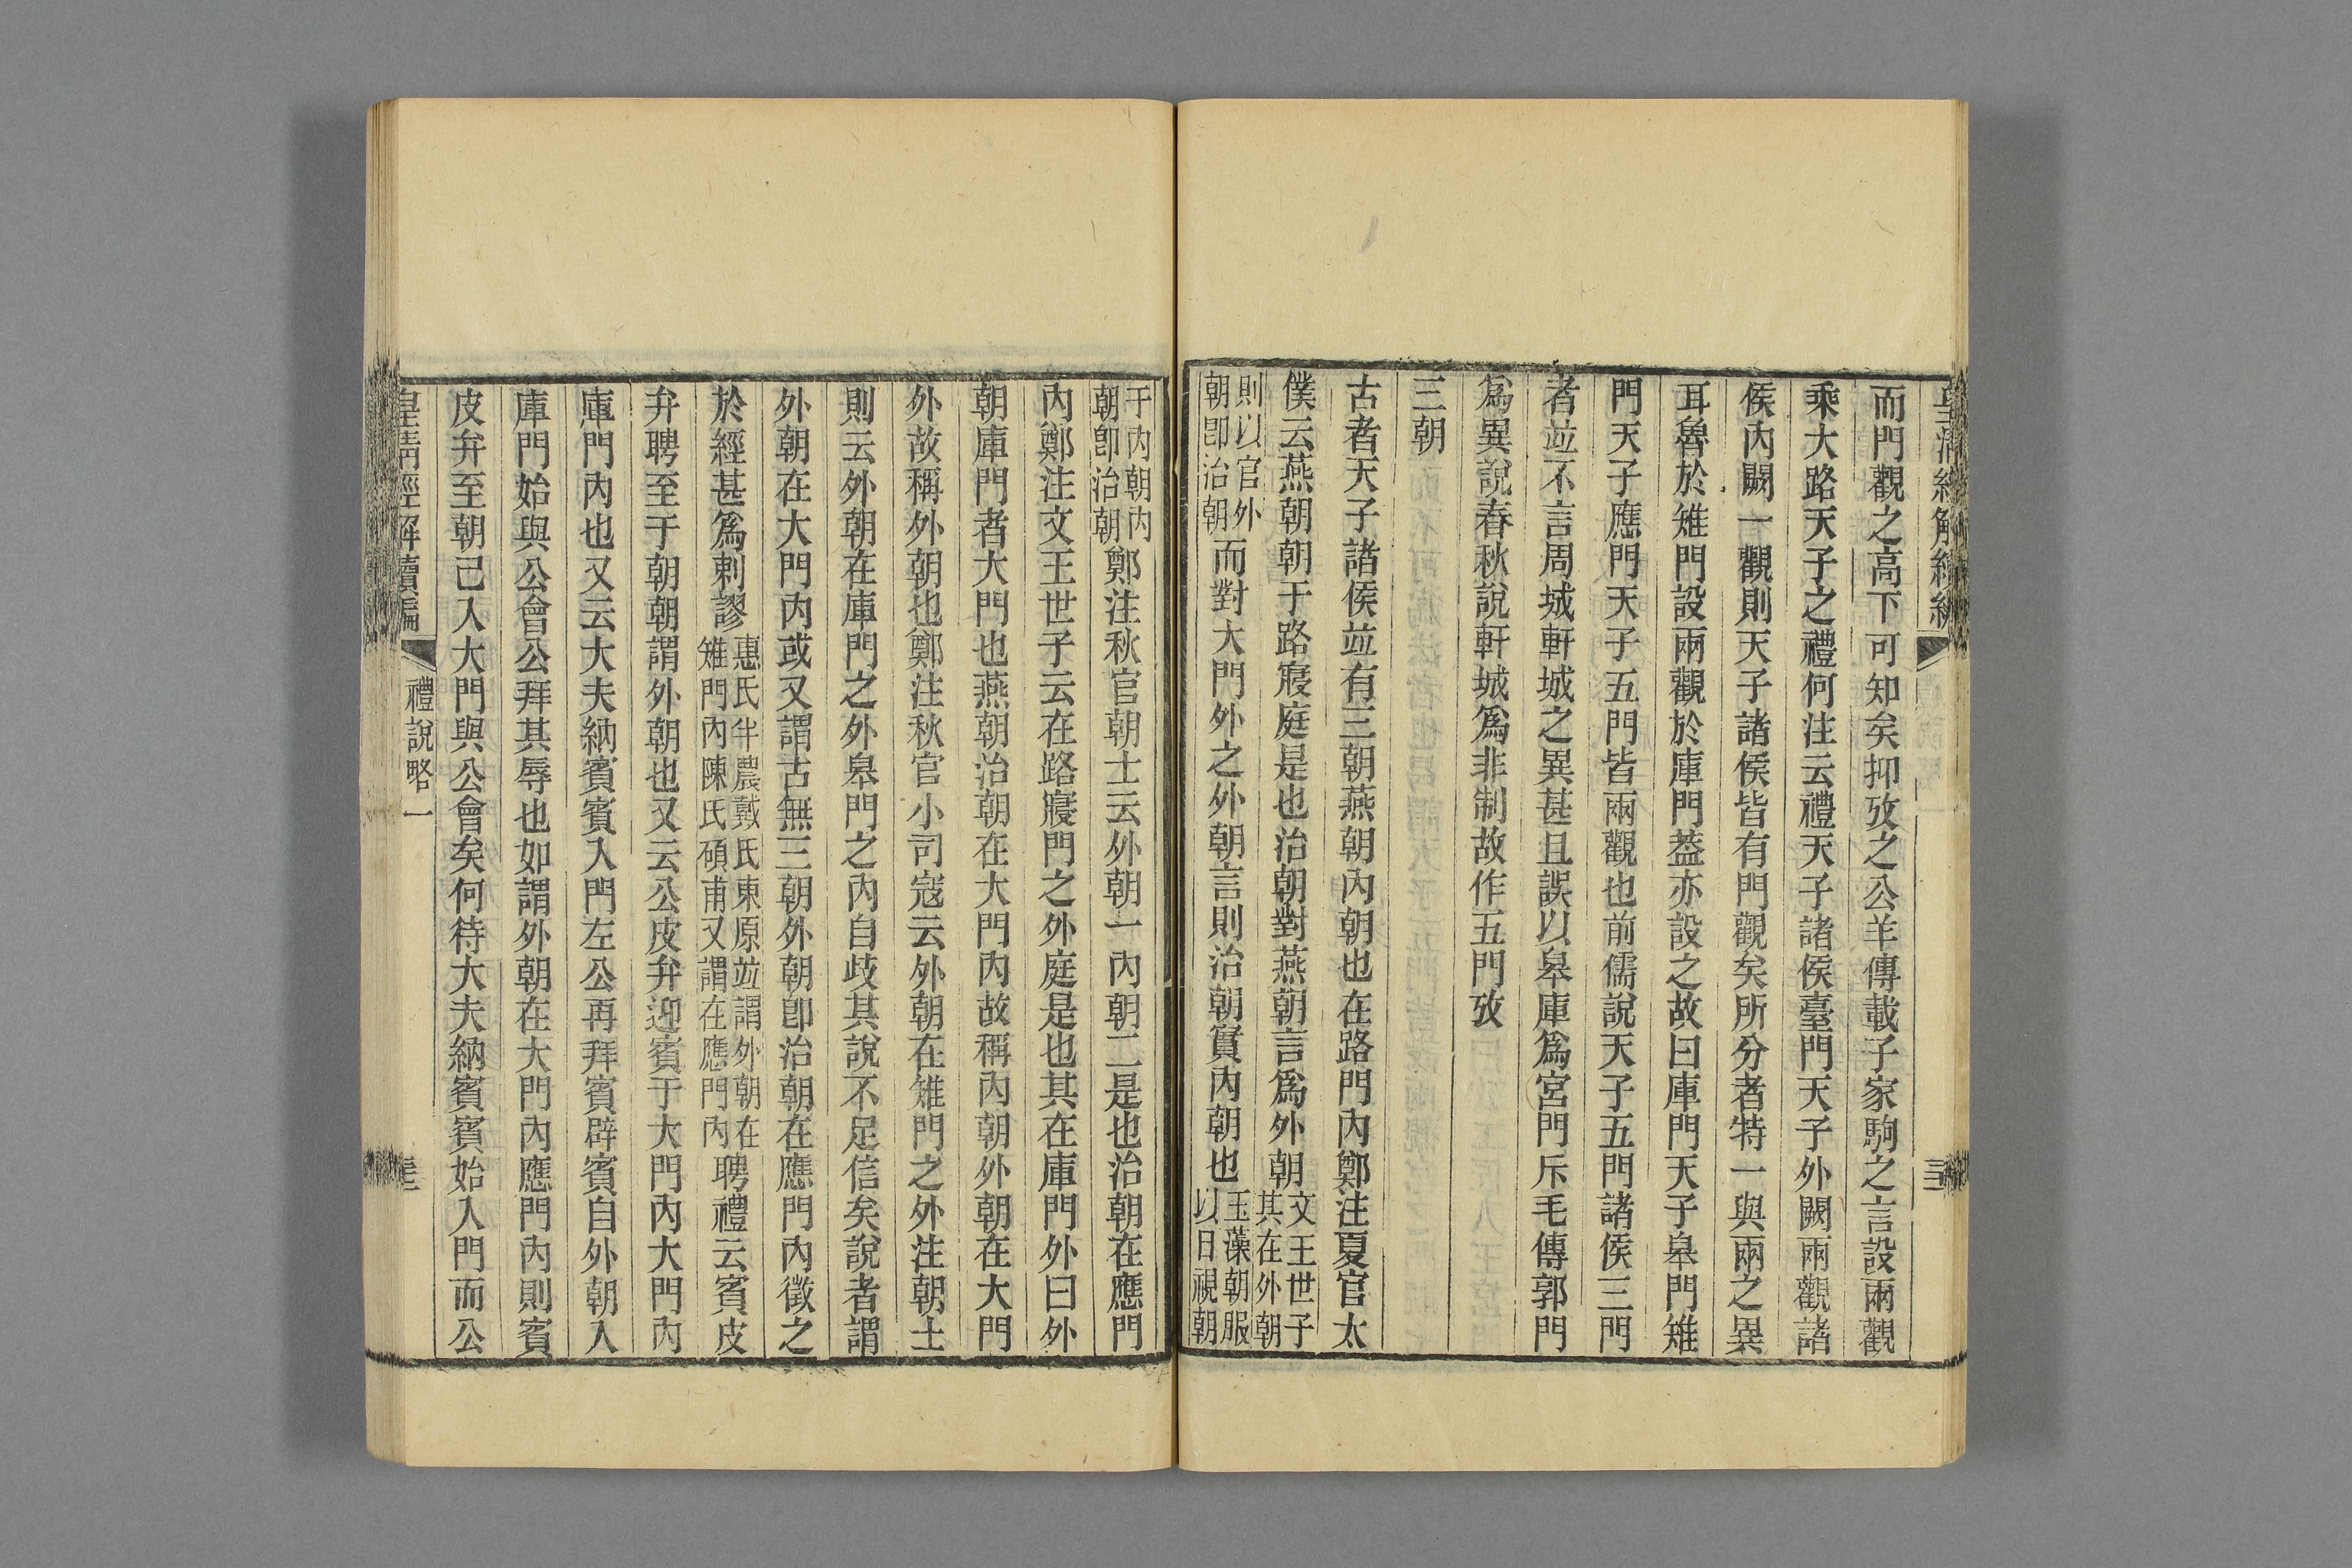 而門觀之高下可知矣抑攷之公羊傳載子家駒之言設兩觀
乘大路天子之禮何注云禮天子諸侯臺門天子外闕兩觀諸
侯內闕一觀則天子諸侯皆有門觀矣所分者特一與兩之異
耳魯於雉門設兩觀於庫門葢亦設之故曰庫門天子皋門雉
門天子應門天子五門皆兩觀也前儒說天子五門諸侯三門
者竝不言周城軒城之異甚且誤以皋庫爲宮門斥毛傳郭門
爲異說春秋說軒城爲非制故作五門攷
三朝
古者天子諸侯竝有三朝燕朝內朝也在路門內鄭注夏官太
僕云燕朝朝于路寢庭是也治朝對燕朝言爲外朝文王世子其在外朝
則以官外朝卽治朝而對大門外之外朝言則治朝實內朝也玉藻朝服以日視朝
于內朝內朝卽治朝鄭注秋官朝士云外朝一內朝二是也治朝在應門
內鄭注文王世子云在路寢門之外庭是也其在庫門外曰外
朝庫門者大門也燕朝治朝在大門內故稱內朝外朝在大門
外故稱外朝也鄭注秋官小司寇云外朝在雉門之外注朝士
則云外朝在庫門之外皋門之內自歧其說不足信矣說者謂
外朝在大門內或又謂古無三朝外朝卽治朝在應門內徵之
於經甚爲剌謬惠氏半農戴氏東原竝謂外朝在雉門內陳氏碩甫又謂在應門內聘禮云賓皮
弁聘至于朝朝謂外朝也又云公皮弁迎賓于大門內大門內
庫門內也又云大夫納賓賓入門左公再拜賓辟賓自外朝入
庫門始與公會公拜其辱也如謂外朝在大門內應門內則賓
皮弁至朝己入大門與公會矣何待大夫納賓賓始入門而公
皇清經解續編
禮說略一